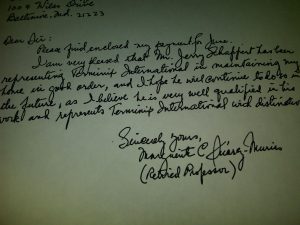 Baltimore, Md. 21223
Dear Sir:
Please find enclosed my payment for June.
I am very pleased that Mr. Jerry Schappert has been
representing Terminix International in maintaining my
home in good order, and I hope he will continue to do so in
the future, as I believe he is very well qualified in his
work and represents Terminix International with distinction
Sincerely yours,
Marguerite C.
(Retired Professor)